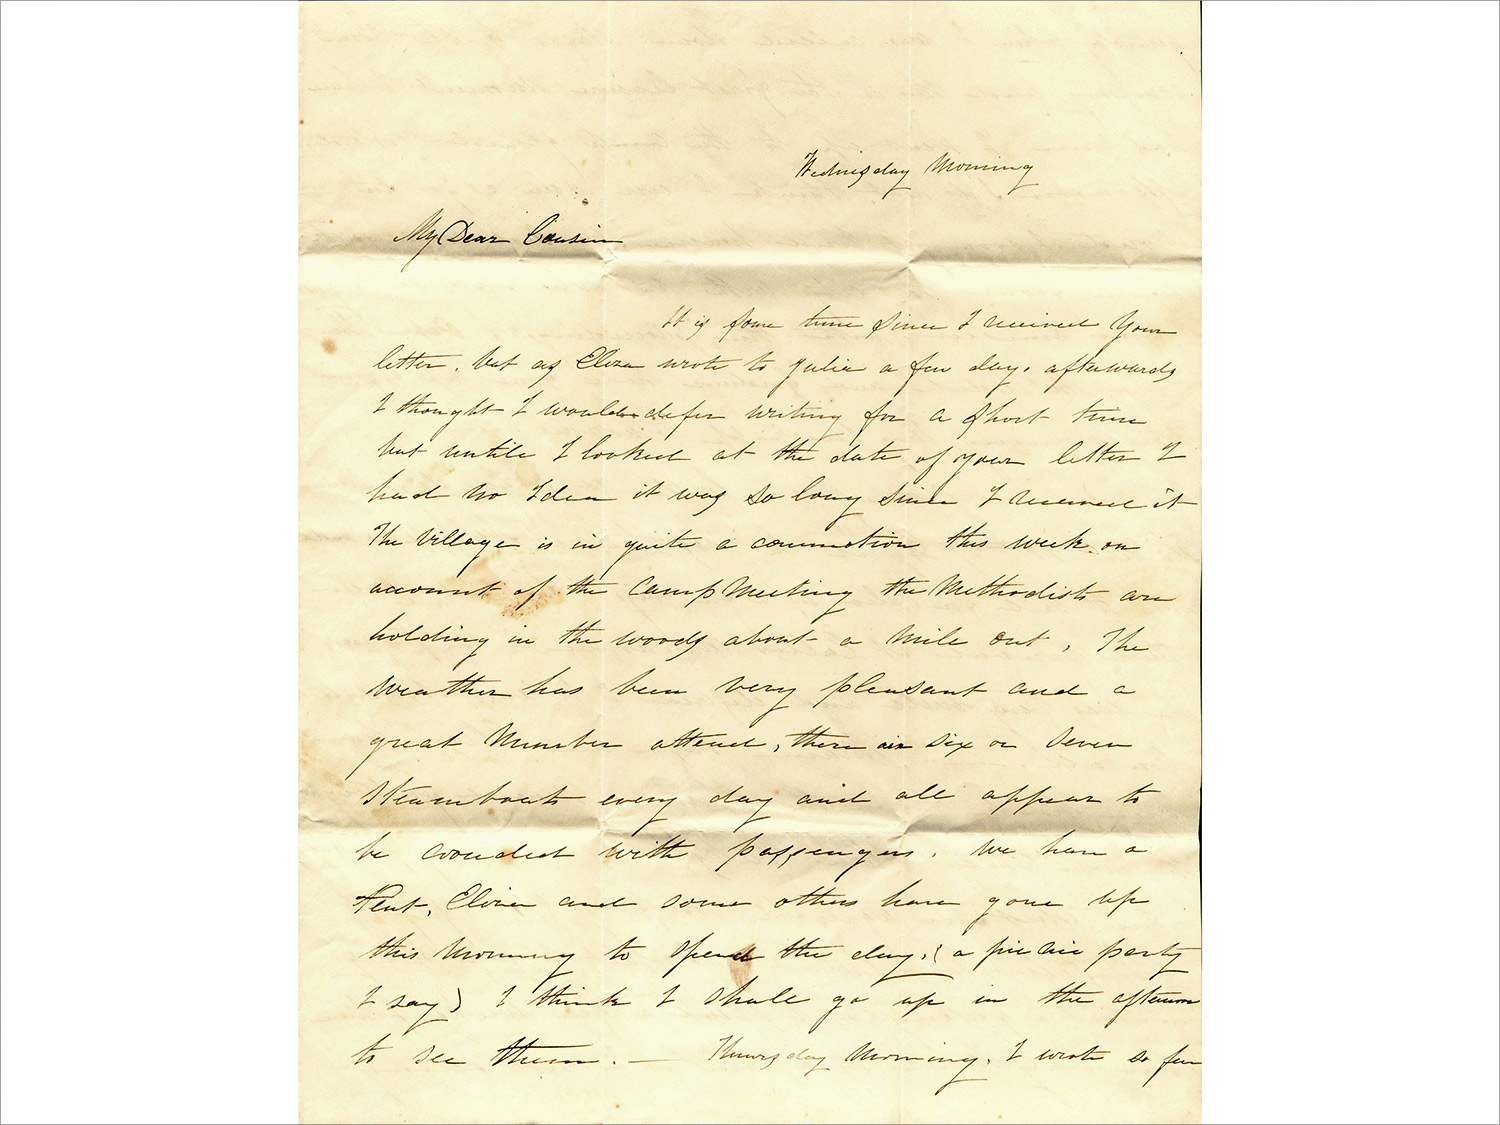 Wednesday Morning
My Dear Cousin
It is some time since I received your
letter, but as Eliza wrote to Julia a few days afterwards
I thought I would defer writing for a short time
but untile I looked at the date of your letter I
had no Idea it was so long since I received it
The village is in quite a commotion this week on
account of the Camp Meeting the Methodists are
holding in the woods about a mile out, The
weather has been very pleasant and a
great Number attend, there are six or seven
steamboats every day and all appear to
be crouded with passengers. We have a
Tent, Eliza and some others have gone up
this Morning to spend the day, (a pic nic party
I say) I think I shall go up in the afternoon
to see them. — Thursday Morning, I wrote so far